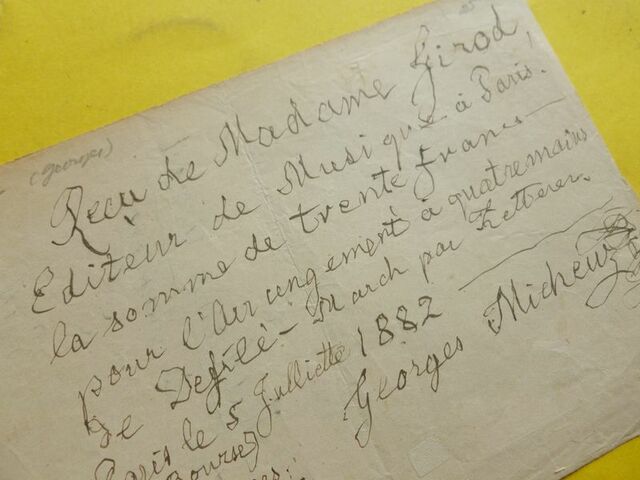 (Georges)
Reçu de Madame Girod,
Editeur de Musique à Paris.
la somme de trente francs
pour l'Arrangement à quatremains
de Defilé-March par Ketterer.
Paris le 5 Julliette 1882
Georges Micheuz
Bourse